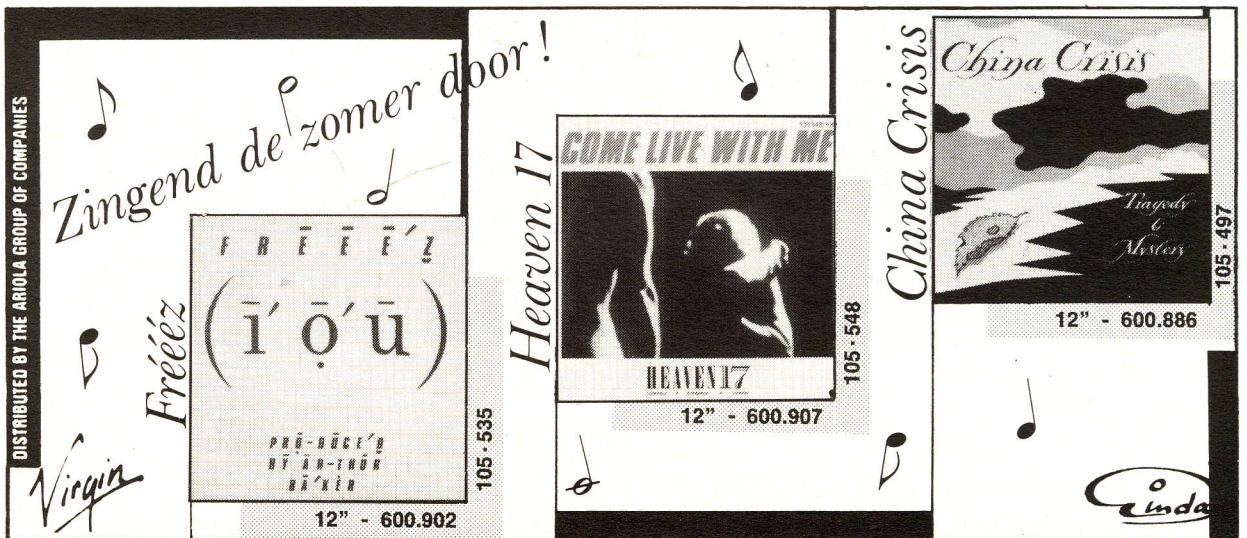 DISTRIBUTED BY THE ARIOLA GROUP OF COMPANIES
Zingend de zomer door!
Virgin
Frééez
F R Ē Ē Ē´ Z̮
(ī´ ọ̄´ ū)
PRŌ-DŪCE´D
BȲ ÄR-THŬR
BĀ´KĖR
105-535
12" - 600.902
Heaven 17
COME LIVE WITH ME
HEAVEN 17
105-548
12" - 600.907
China Crisis
China Crisis
Tragedy
&
Mystery
105-497
12" - 600.886